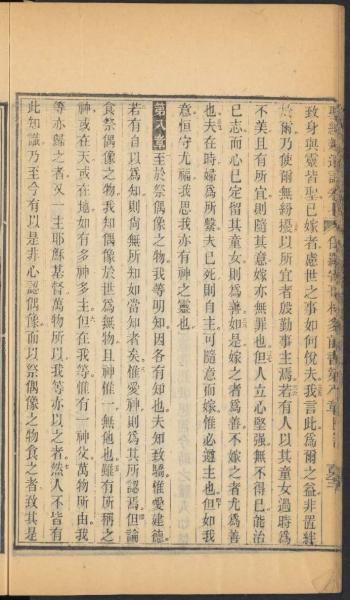 致身與靈皆聖已嫁者慮世之事如何悅夫我言此為爾之益非置絆
於爾乃使爾無紛擾以所宜者殷勤事主焉若有人以其童女過時為
不美且有所宜則隨其意嫁亦無罪也但人立心堅强無不得已能治
己志而心已定留其童女則為善如是嫁之者為善不嫁之者尤為善
也夫在時婦為所繫夫已死則自主可隨意而嫁惟必遵主也但如我
意恒守尤福我思我亦有神之靈也
第八章至於祭偶像之物我等明知因各有知也夫知致驕惟愛建德
若有自以為知則尚無所知如當知者矣惟愛神則為其所認焉但論
食祭偶像之物我知偶像於世為無物且神惟一無他也雖有所稱之
神或在天或在地如有多神多主但在我等惟有一神父萬物所由我
等亦歸之者又一主耶穌基督萬物所以我等亦以之者然人不皆有
此知識乃至今有以是非心認偶像而以祭偶像之物食之者致其是